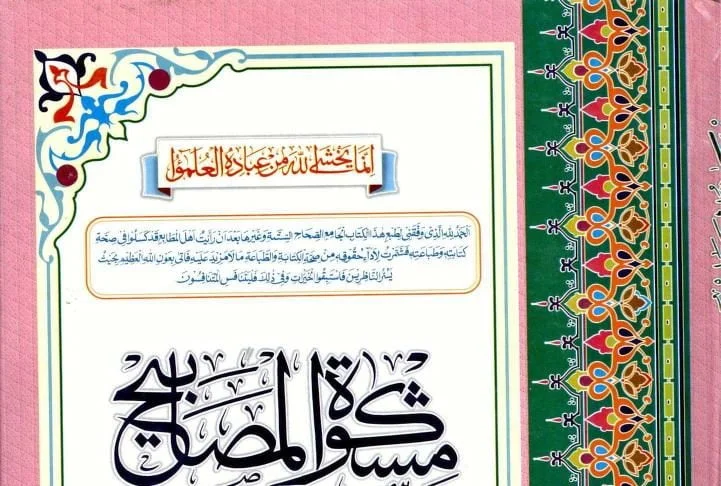 إنما يخشى الله من عباده العلمؤا
الحمد لله الذي وفقني لطبع هذا الكتاب الجامع الصحاح الستة وغيرها بعد ان رأيت اهل المطابع قد كسلوا في صحة
كتابته وطباعته فشمرت لاداء حقوقه من صحة الكتابة والطباعة ما لا مزيد عليه فاتى بعون الله العظيم بحيث
يسر الناظرين فاستبقوا الخيرات وفي ذلك فليتنافس المتنافسون
مشكوة المصابيح